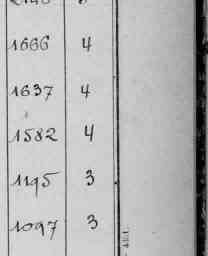 1666 4
1637 4
1582 4
1195 3
1097 3